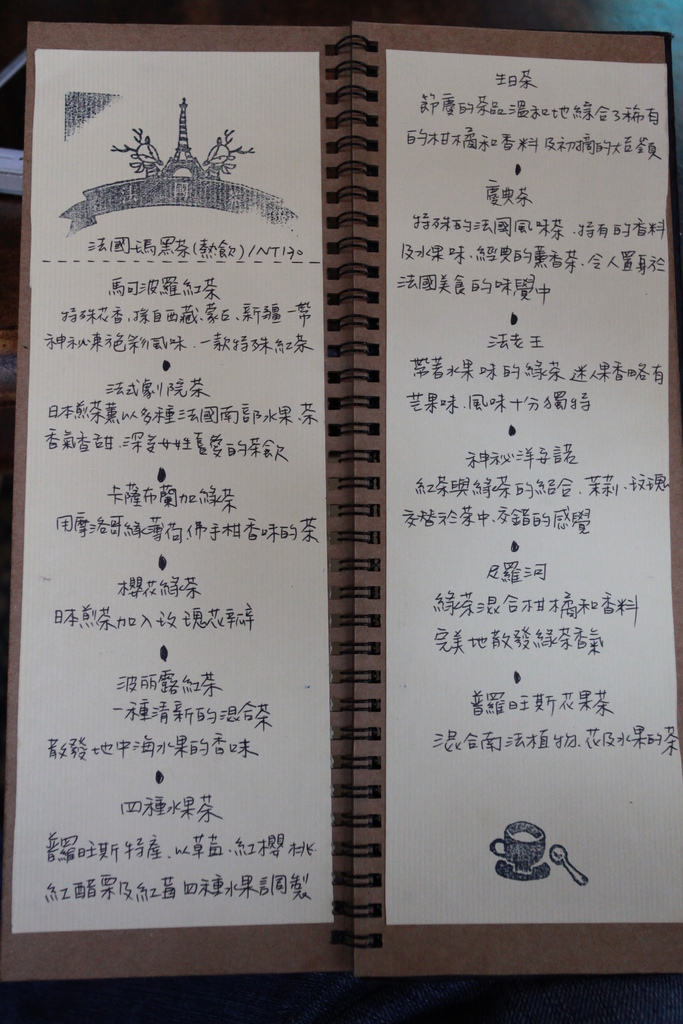 法國瑪黑茶(熱飲)/NT130
馬可波羅紅茶
特殊花香,採自西藏、蒙古、新疆一帶
神祕東色彩風味.一款特殊紅茶
法式劇院茶
日本煎茶薰以多種法國南部水果茶
香氣香甜.深受女性喜愛的茶飲
卡薩布蘭加綠茶
用摩洛哥綠薄荷.佛手柑香味的茶
櫻花綠茶
日本煎茶加入玫瑰花瓣
波麗露紅茶
一種清新的混合茶
散發地中海水果的香味
四種水果茶
普羅旺斯特產.以草莓.紅櫻桃
紅醋栗及紅莓四種水果調製
生日茶
節慶的茶品溫和地綜合了稀有
的柑橘和香料及初摘的大吉嶺
慶典茶
特殊的法國風味茶.特有的香料
及水果味.經典的薰香茶.令人置身於
法國美食的味覺中
法老王
帶著水果味的綠茶 迷人果香略有
芒果味.風味十分獨特
神祕洋子諾
紅茶與綠茶的結合.茉莉.玫瑰
交替於茶中.交錯的感覺
尼羅河
綠茶混合柑橘和香料
完美地散發綠茶香氣
普羅旺斯花果茶
混合南法植物.花及水果的茶